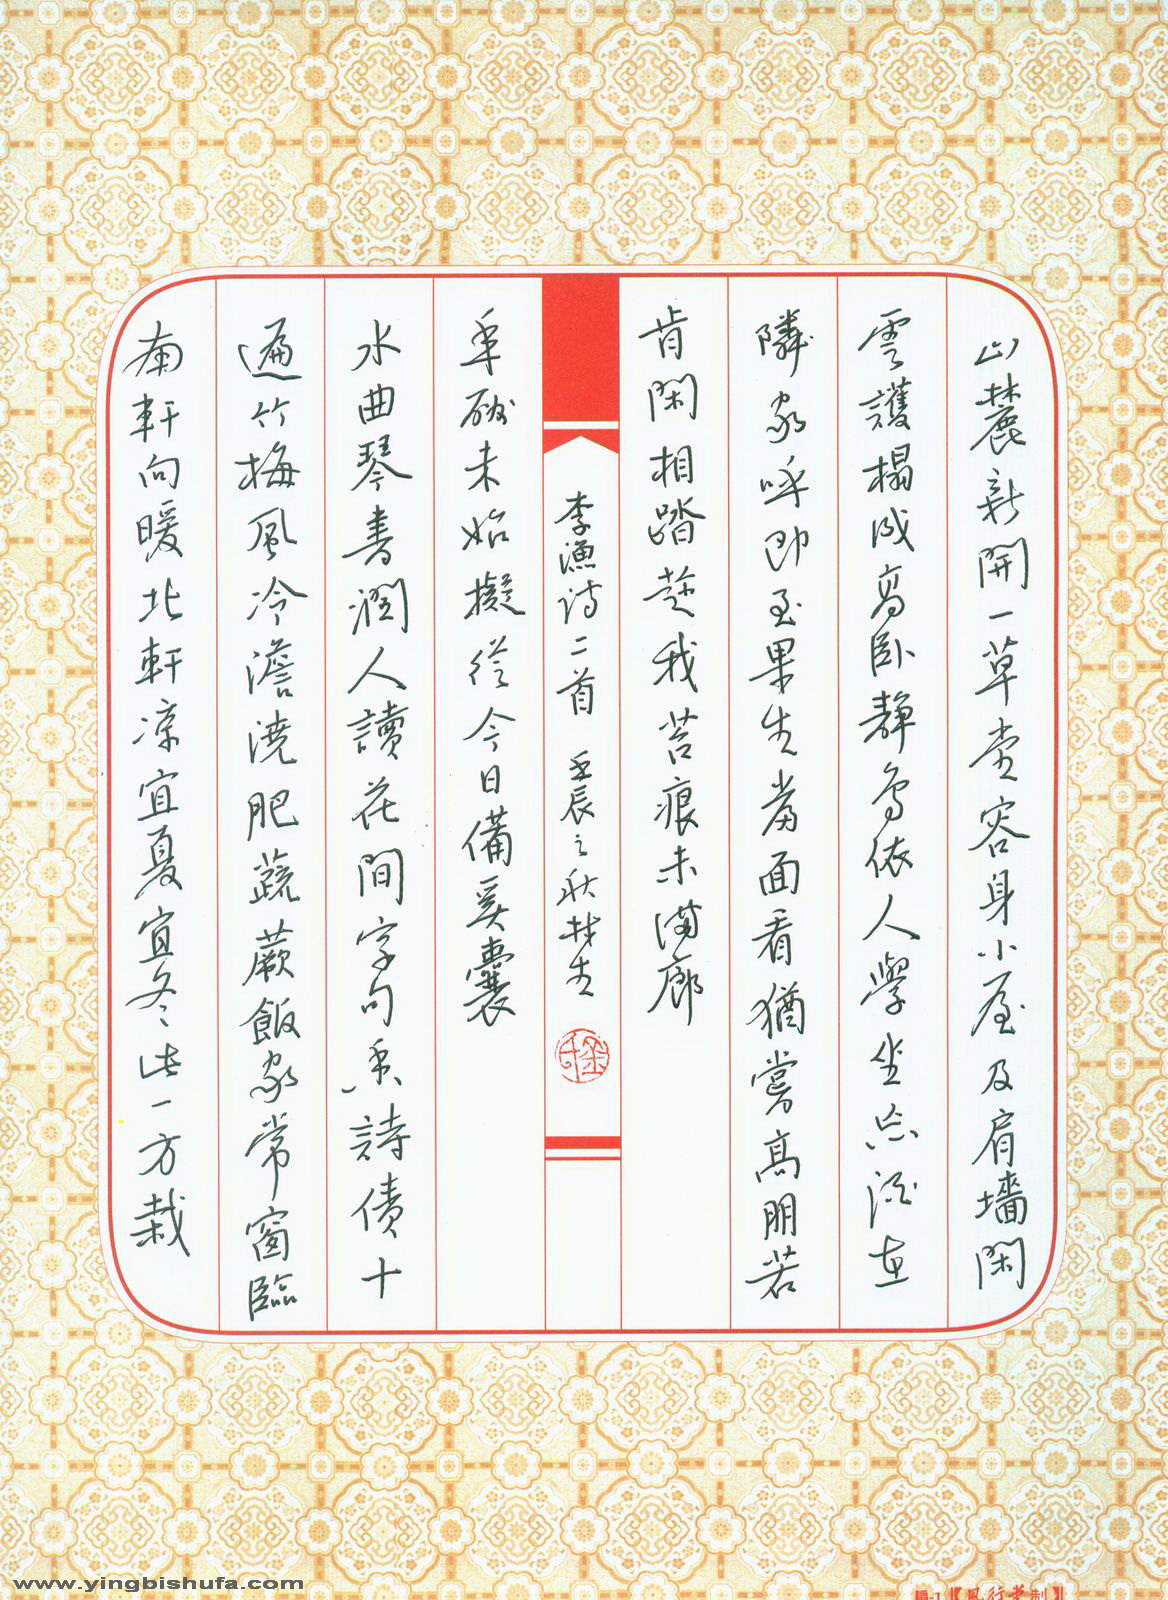 山麓新開一草堂容身小屋及肩墻閑
雲護榻成高卧靜鳥依人學坐忘酒在
隣家呼即至果生當面看猶嘗高朋若
肯閑相踏趁我苔痕未滿廊
南軒向暖北軒凉宜夏宜冬此一方栽
遍竹梅風冷澹澆肥蔬蕨飯家常窗臨
水曲琴書潤人讀花間字句香詩債十
年酬未始擬從今日備奚囊
李漁詩二首 壬辰之秋
www.yingbishufa.com